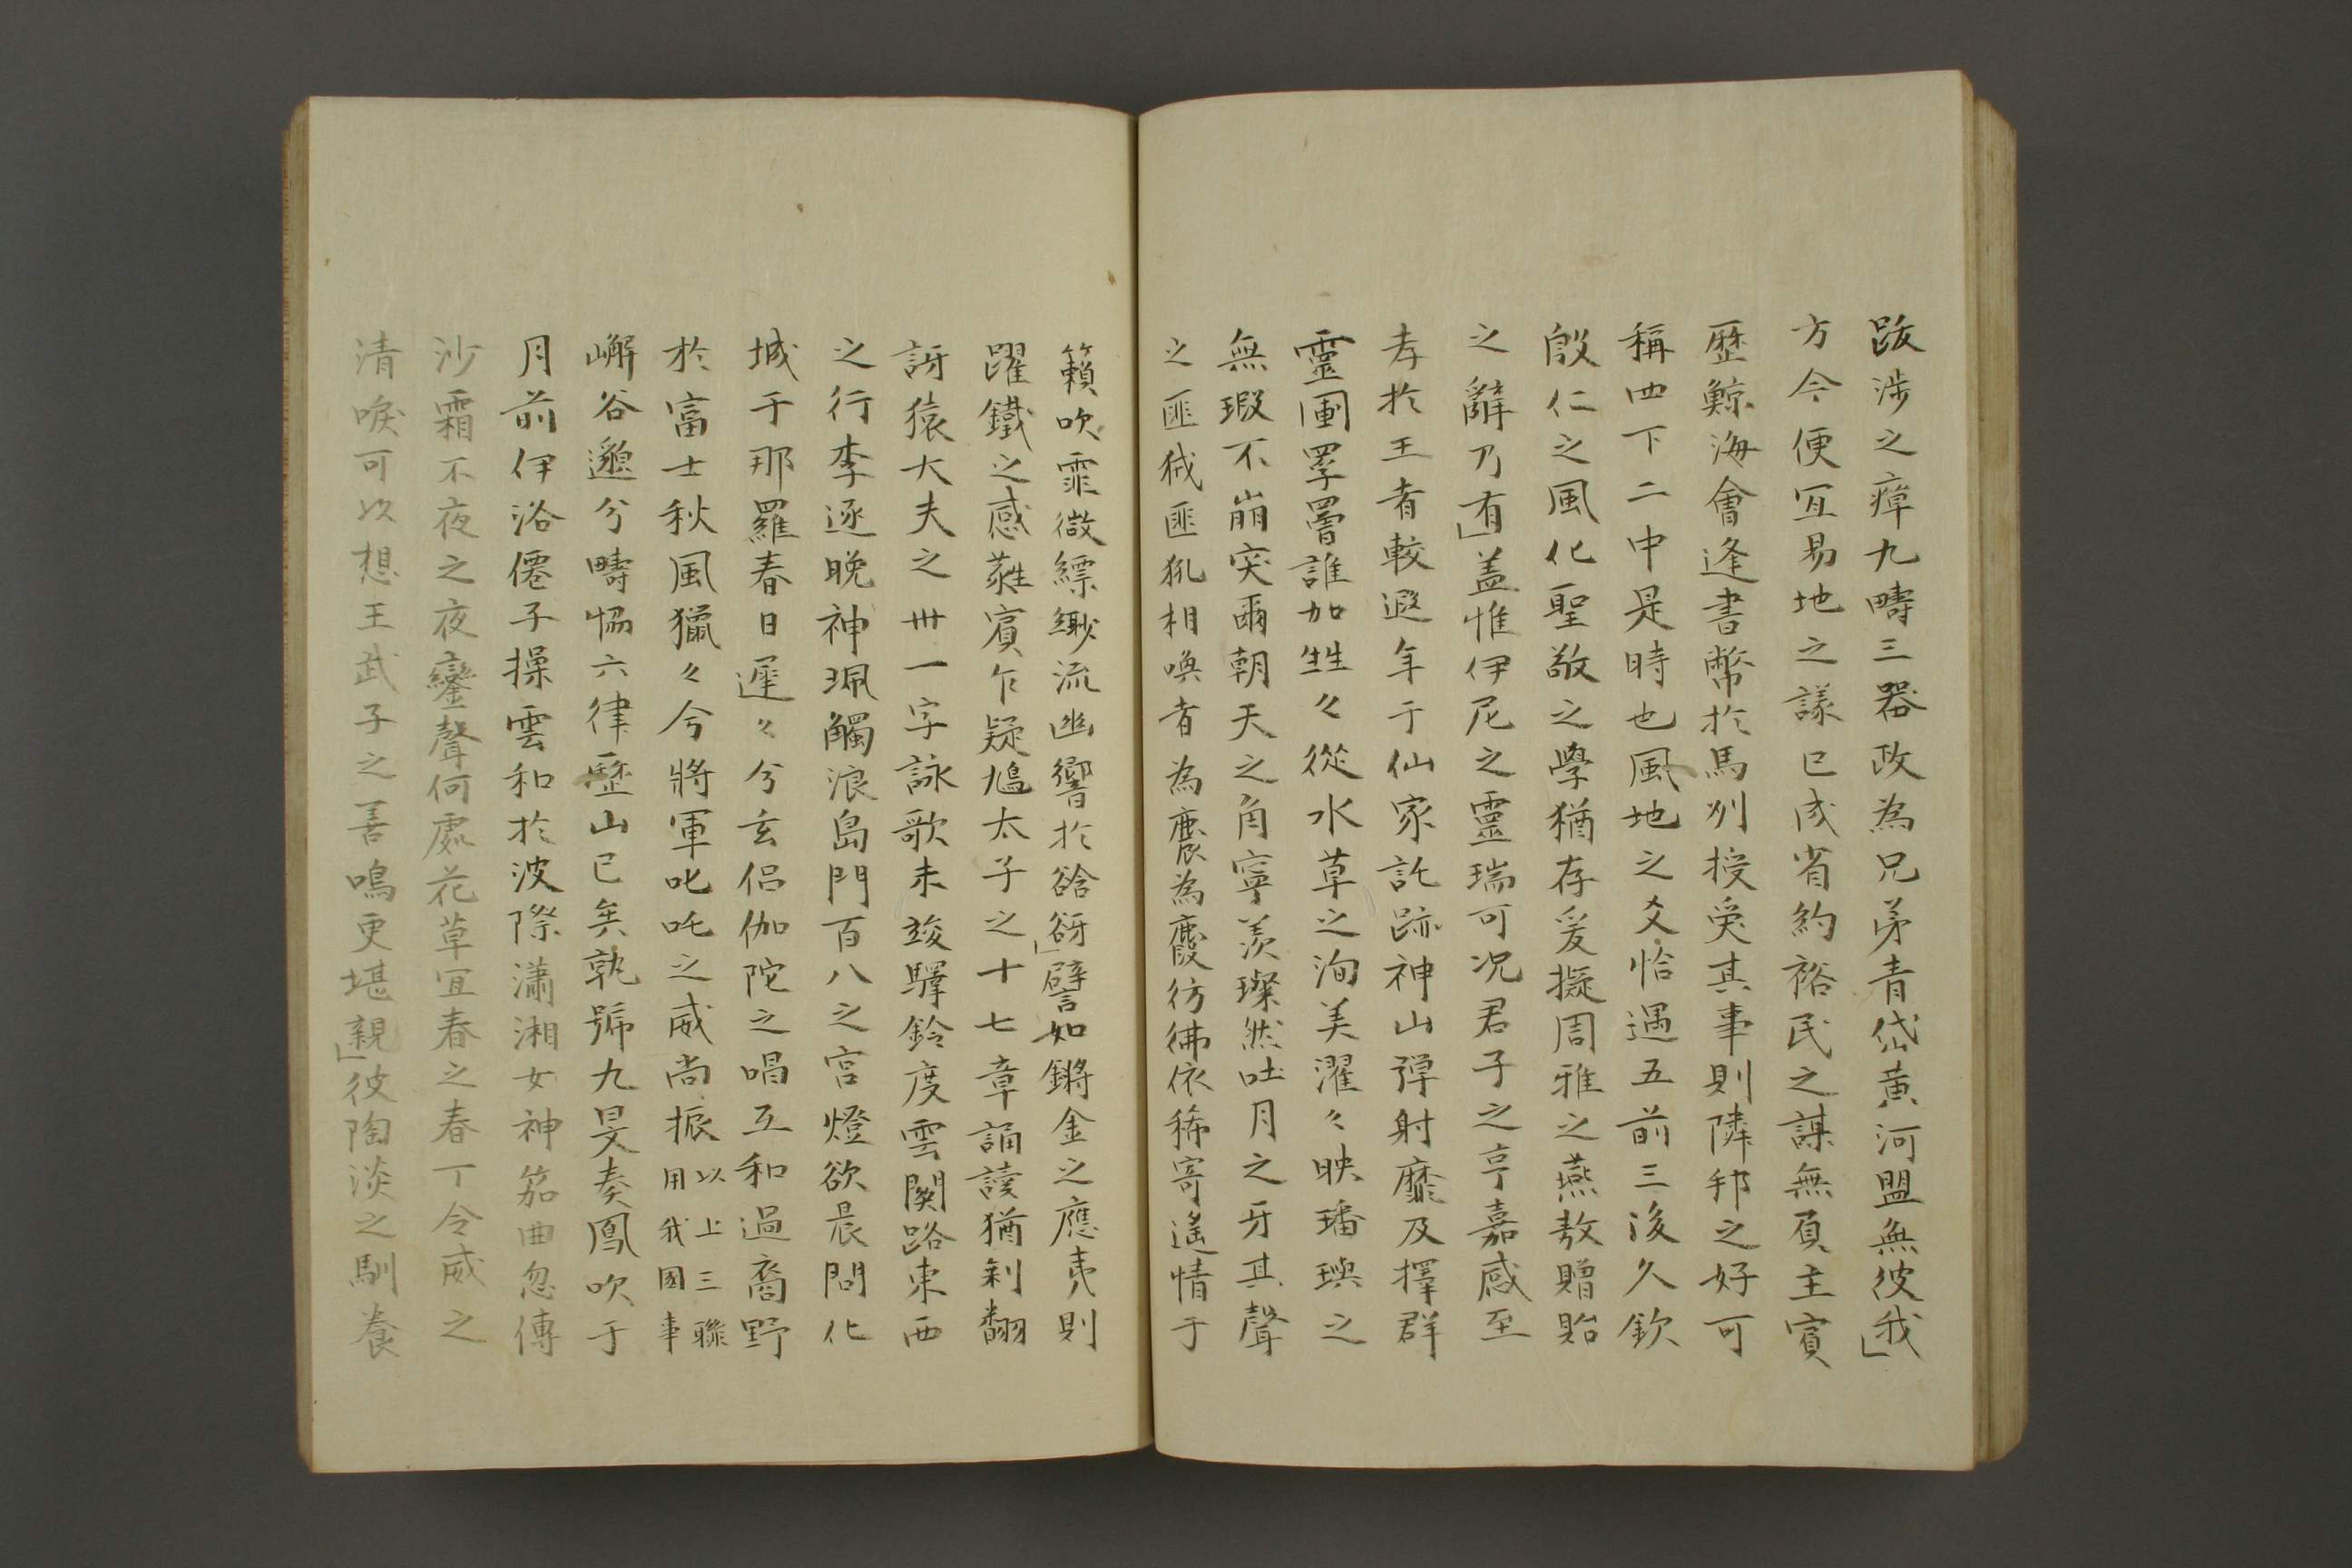 跋涉之瘴九疇三器政為兄弟青岱黄河盟無彼我」
方今便宜易地之議已成省約裕民之謀無負主賓
歷鯨海會逢書幣於馬州授受其事則隣邦之好可
稱四下二中是時也風地之爻恰遇五前三後久欽
殷仁之風化聖敬之學猶存爰擬周雅之燕敖贈貽
之辭乃有」盖惟伊尼之靈瑞可况君子之亨嘉感至
孝於王者較遐年于仙家託跡神山彈射靡及擇群
靈囿罣罾誰加甡々從水草之洵美濯々映璠璵之
無瑕不崩突爾朝天之角寧羨璨然吐月之牙其聲
之匪㹜匪犼相喚者為麎為麚彷彿依稀寄遙情于
籟吹霏微縹緲流幽響於谽谺」譬如鏘金之應夷則
躍鐵之感蕤賓乍疑鳩太子之十七章誦讀猶剩翻
訝猿大夫之卅一字詠歌未竣驛鈴度雲関路東西
之行李逐晚神珮觸浪島門百八之宮燈欲晨問化
城于那羅春日遲々兮玄侶伽陀之唱互和過裔野
於富士秋風獵々今將軍叱吒之威尚振以上三聯用我國事
嶰谷邈兮疇恊六律歷山已矣孰號九旻奏鳳吹于
月前伊洛僊子操雲和於波際瀟湘女神笳曲忽傳
沙霜不夜之夜鑾聲何處花草宜春之春丁令威之
清唳可以想王武子之善鳴更堪親」彼陶淡之馴養